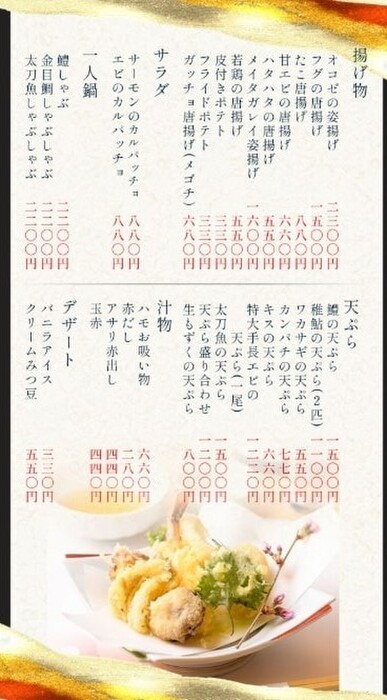 揚げ物
オコゼの姿揚げ 二三〇〇円
フグの唐揚げ 一五〇〇円
たこ唐揚げ 八八〇円
甘エビの唐揚げ 六六〇円
ハタハタの唐揚げ 五五〇円
メイタガレイ姿揚げ 一六〇〇円
若鶏の唐揚げ 五五〇円
皮付きポテト 三三〇円
フライドポテト 三三〇円
ガッチョ唐揚げ(メゴチ) 六八〇円
サラダ
サーモンのカルパッチョ 八八〇円
エビのカルパッチョ 八八〇円
一人鍋
鱧しゃぶ 二二〇〇円
金目鯛しゃぶしゃぶ 二二〇〇円
太刀魚しゃぶしゃぶ 二二〇〇円
天ぷら
鱧の天ぷら 一五〇〇円
稚鮎の天ぷら(2匹) 一一〇〇円
ワカサギの天ぷら 五五〇円
カンパチの天ぷら 七七〇円
キスの天ぷら 六六〇円
特大手長エビの
天ぷら(一尾)
太刀魚の天ぷら 一五〇〇円
天ぷら盛り合わせ 一二〇〇円
生もずくの天ぷら 八〇〇円
汁物
ハモお吸い物 六六〇円
赤だし 二八〇円
アサリ赤出し 四四〇円
玉赤 四四〇円
デザート
バニラアイス 三三〇円
クリームみつ豆 五五〇円